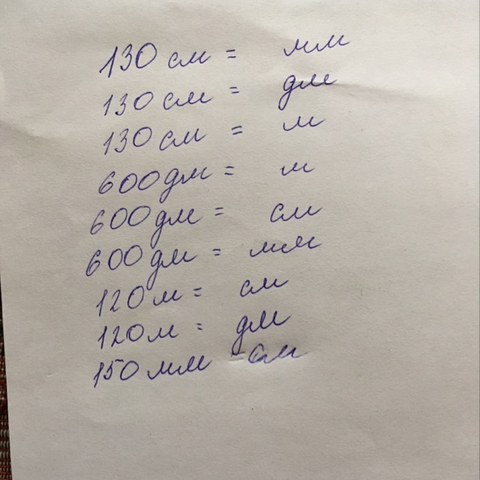 130 см = мм
130 см = дм
130 см = м
600 дм = м
600 дм = см
600 дм = мм
120 м = см
120 м = дм
150 мм см